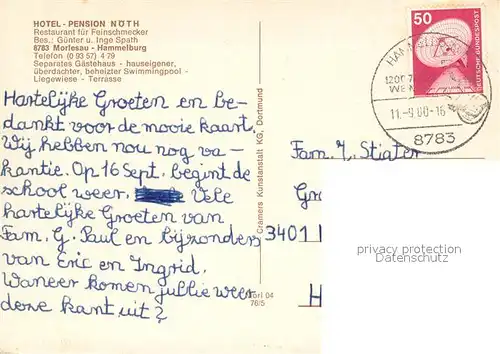 HOTEL - PENSION NÖTH
Restaurant für Feinschmecker
Bes.: Günter u. Inge Spath
8783 Morlesau - Hammelburg
Telefon (0 93 57) 4 79
Separates Gästehaus - hauseigener,
überdachter, beheizter Swimmingpool -
Liegewiese - Terrasse
Hartelijke Groeten en be-
dankt voor de mooie kaart.
Wij hebben nou nog va-
kantie. Op 16 Sept. begint de
school weer. Vele
hartelijke Groeten van
Fam. G. Paul en bijzonders
van Eric en Ingrid.
Waneer komen jullie weer
deze kant uit?
Cramers Kunstanstalt KG, Dortmund
04
76/5
50
DEUTSCHE BUNDESPOST
HAMMELBURG
1200
11.-9.80-16
8783
Fam. J. Stiater
Gr
3401
H
privacy protection
Datenschutz